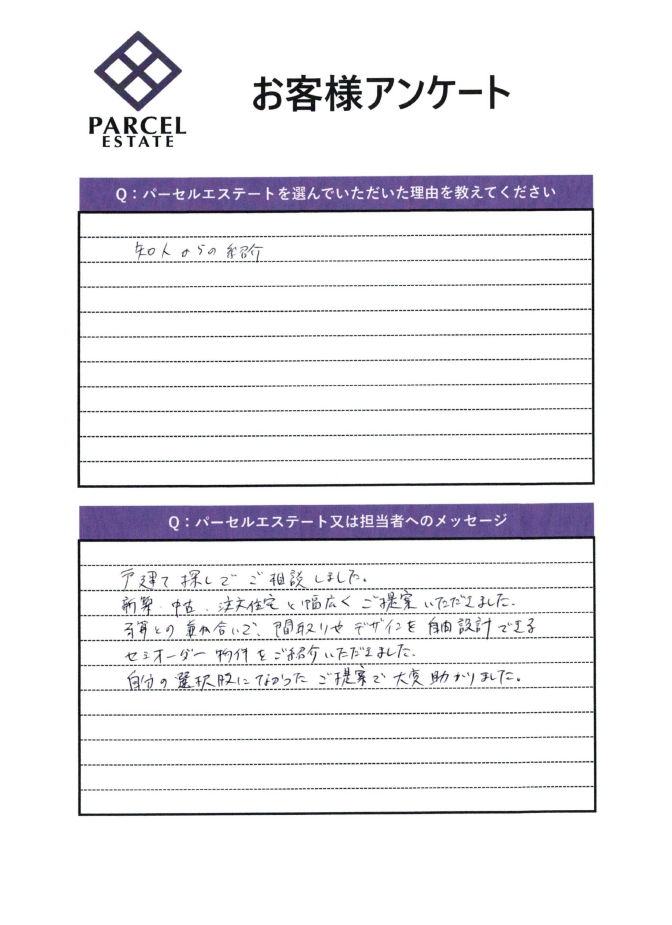 PARCEL
ESTATE
お客様アンケート
Q：パーセルエステートを選んでいただいた理由を教えてください
知人からの紹介
Q：パーセルエステート又は担当者へのメッセージ
戸建て探しでご相談しました。
新築・中古・注文住宅と幅広くご提案いただきました。
予算との兼ね合いで、間取りやデザインを自由設計できる
セミオーダー物件をご紹介いただきました。
自分の選択肢になかったご提案で大変助かりました。